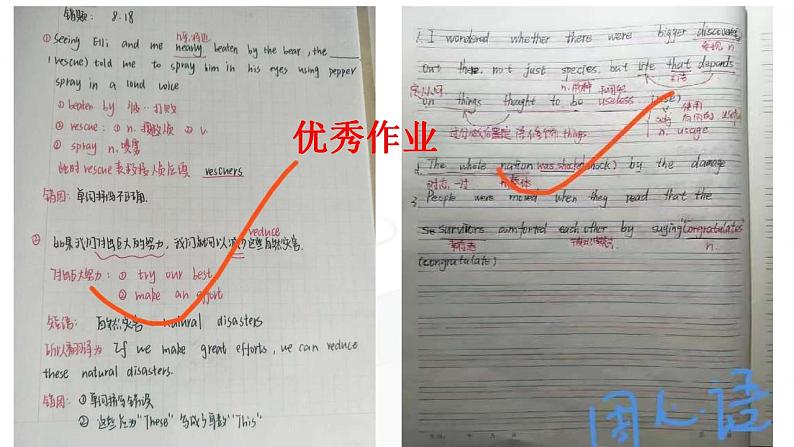 错题: 8.18
① Seeing Elli and me nearly beaten by the bear, the
(rescue) told me to spray him in his eyes using pepper
spray in a loud voice
① beaten by 被…打败
② rescue: ① n. 救援 ② v.
③ spray n. 喷雾
此时rescue表救援人员应该 rescuers
错因: 单词拼写不正确.
reduce
② 如果我们付出巨大的努力, 我们就可以减少这些自然灾害.
付出巨大努力: ① try our best
② make an effort
短语: 自然灾害 natural disasters
所以翻译为 If we make great efforts, we can reduce
these natural disasters.
错因: ① 单词拼写错误
② 这些应为"These" 写成了单数"This"
优秀作业
1. I wondered whether there were bigger discoveries
发现 n.
out there, not just species, but life that depends
n. 物种
on things thought to be useless (use)
things.
使用
adj 有用的 useful
n. usage
2. The whole nation was shocked (shock) by the damage
时态: 一过
3. People were moved when they read that the
survivors comforted each other by saying "Congratulations"
幸存者
n.
(congratulate)
用心语